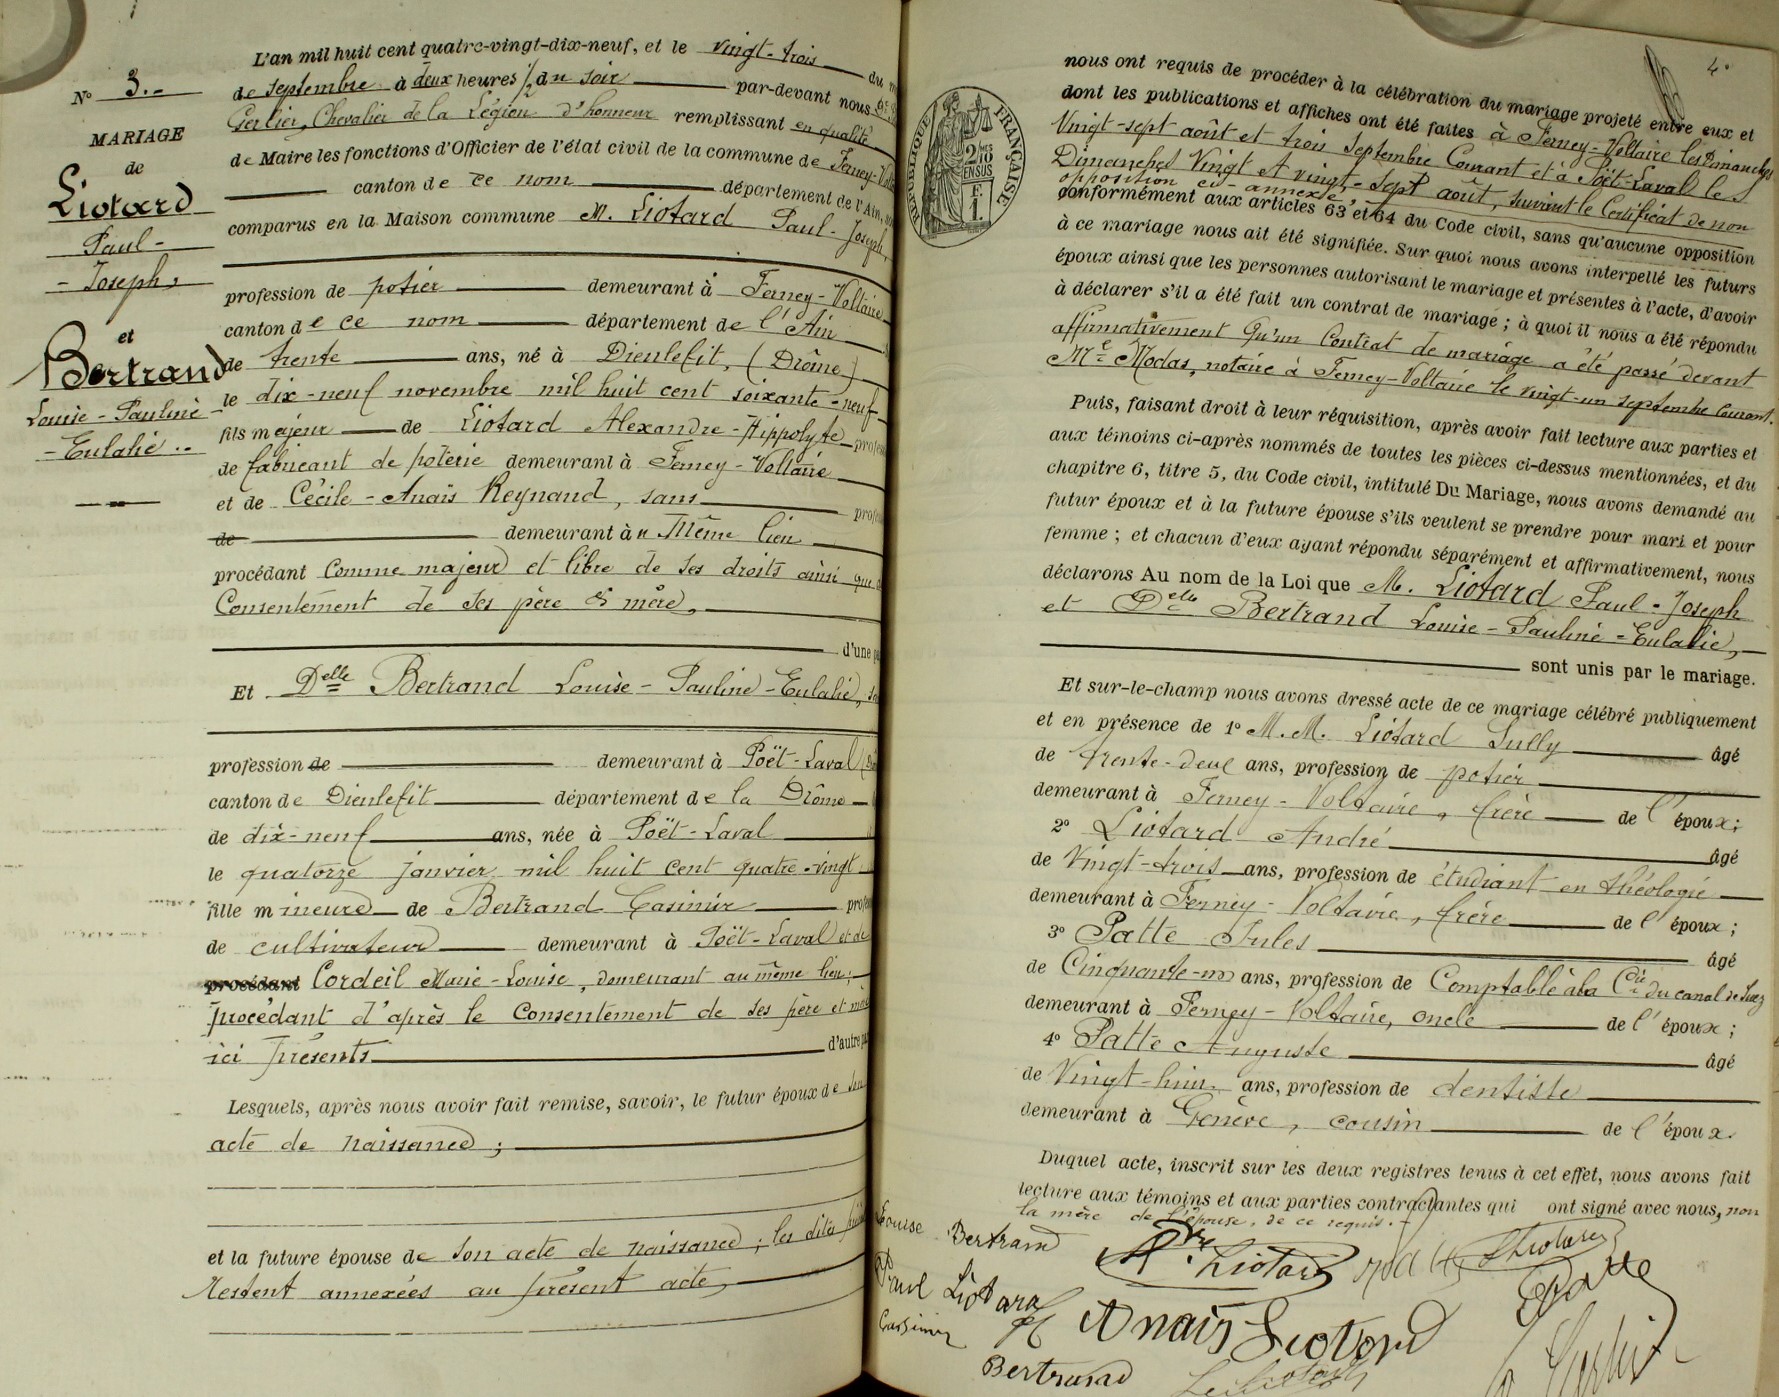 L'an mil huit cent quatre-vingt-dix-neuf, et le vingt-trois du
N° 3.-
de septembre à deux heures ½ du soir par-devant nous
Gerlier, Chevalier de la Légion d'honneur remplissant en qualité
MARIAGE
de Maire les fonctions d'Officier de l'état civil de la commune de Ferney-
de
canton de ce nom département de l'Ain,
Liotard
comparus en la Maison commune M. Liotard Paul-Joseph,
Paul-
-Joseph,
profession de potier demeurant à Ferney-Voltaire
canton de ce nom département de l'Ain
et
de trente ans, né à Dieulefit, (Drôme)
Bertrand
le dix-neuf novembre mil huit cent soixante-neuf
Louise-Pauline-
fils majeur de Liotard Alexandre-Hippolyte
-Eulalie..
de fabricant de poterie demeurant à Ferney-Voltaire
et de Cécile-Anaïs Reynaud, sans
de demeurant à u Même lieu
procédant comme majeur et libre de ses droits ainsi que
Consentement de ses père & mère,
d'une
Et Delle Bertrand Louise-Pauline-Eulalie,
profession de demeurant à Poët-Laval
canton de Dieulefit département de la Drôme
de dix-neuf ans, née à Poët-Laval
le quatorze janvier mil huit cent quatre-vingt
fille mineure de Bertrand Casimir
de cultivateur demeurant à Poët-Laval et de
procédant Cordeil Marie-Louise, demeurant au même lieu;
procédant d'après le Consentement de ses père et mère
ici présents d'autre
Lesquels, après nous avoir fait remise, savoir, le futur époux de son
acte de naissance;
et la future épouse de son acte de naissance; les dites
Restent annexées au présent acte,
4°
nous ont requis de procéder à la célébration du mariage projeté entre eux et
dont les publications et affiches ont été faites à Ferney-Voltaire les Dimanches
Vingt-sept août et trois Septembre Courant et à Poët-Laval le
Dimanches Vingt et vingt-sept août, suivant le Certificat de non
opposition ci-annexé,
conformément aux articles 63 et 64 du Code civil, sans qu'aucune opposition
à ce mariage nous ait été signifiée. Sur quoi nous avons interpellé les futurs
époux ainsi que les personnes autorisant le mariage et présentes à l'acte, d'avoir
à déclarer s'il a été fait un contrat de mariage; à quoi il nous a été répondu
affirmativement Qu'un Contrat de mariage a été passé devant
Me Modas, notaire à Ferney-Voltaire le vingt-un septembre Courant.
Puis, faisant droit à leur réquisition, après avoir fait lecture aux parties et
aux témoins ci-après nommés de toutes les pièces ci-dessus mentionnées, et du
chapitre 6, titre 5, du Code civil, intitulé Du Mariage, nous avons demandé au
futur époux et à la future épouse s'ils veulent se prendre pour mari et pour
femme; et chacun d'eux ayant répondu séparément et affirmativement, nous
déclarons Au nom de la Loi que M. Liotard Paul-Joseph
et Delle Bertrand Louise-Pauline-Eulalie,
sont unis par le mariage.
Et sur-le-champ nous avons dressé acte de ce mariage célébré publiquement
et en présence de 1° M.M. Liotard Sully âgé
de trente-deux ans, profession de potier
demeurant à Ferney-Voltaire, frère de l'époux;
2° Liotard André âgé
de Vingt-trois ans, profession de étudiant en théologie
demeurant à Ferney-Voltaire, frère de l'époux;
3° Patte Jules âgé
de Cinquante-un ans, profession de Comptable à la Cie du canal de Suez
demeurant à Ferney-Voltaire, oncle de l'époux;
4° Patte Auguste âgé
de Vingt-huit ans, profession de dentiste
demeurant à Genève, cousin de l'époux.
Duquel acte, inscrit sur les deux registres tenus à cet effet, nous avons fait
lecture aux témoins et aux parties contractantes qui ont signé avec nous, non
la mère de l'épouse, de ce requis.
Louise Bertrand
Liotard
Paul Liotard
Anaïs Liotard
Casimir
Bertrand
RÉPUBLIQUE FRANÇAISE